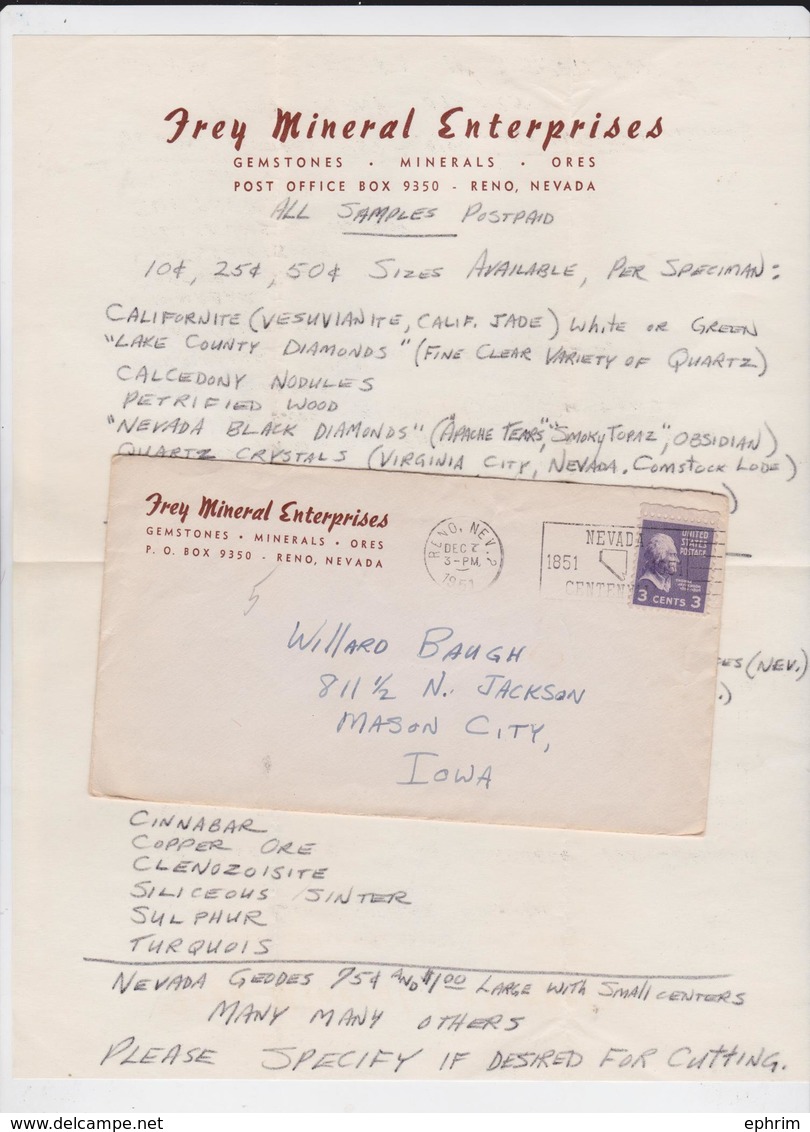 Frey Mineral Enterprises
GEMSTONES · MINERALS · ORES
POST OFFICE BOX 9350 - RENO, NEVADA
ALL SAMPLES POSTPAID
10¢, 25¢, 50¢ SIZES AVAILABLE, PER SPECIMAN:
CALIFORNITE (VESUVIANITE, CALIF. JADE) WHITE OR GREEN
"LAKE COUNTY DIAMONDS" (FINE CLEAR VARIETY OF QUARTZ)
CALCEDONY NODULES
PETRIFIED WOOD
"NEVADA BLACK DIAMONDS" ("APACHE TEARS", "SMOKY TOPAZ", OBSIDIAN)
QUARTZ CRYSTALS (VIRGINIA CITY, NEVADA. COMSTOCK LODE)
Frey Mineral Enterprises
GEMSTONES · MINERALS · ORES
P. O. BOX 9350 - RENO, NEVADA
RENO, NEV.
DEC
3-PM
1951
NEVADA
1851
CENTEN
UNITED
STATES
POSTAGE
3 CENTS 3
WILLARD BAUGH
811 ½ N. JACKSON
MASON CITY,
IOWA
(NEV.)
CINNABAR
COPPER ORE
CLENOZOISITE
SILICEOUS SINTER
SULPHUR
TURQUOIS
NEVADA GEODES 75¢ AND $1.00 LARGE WITH SMALL CENTERS
MANY MANY OTHERS
PLEASE SPECIFY IF DESIRED FOR CUTTING.
ephrim